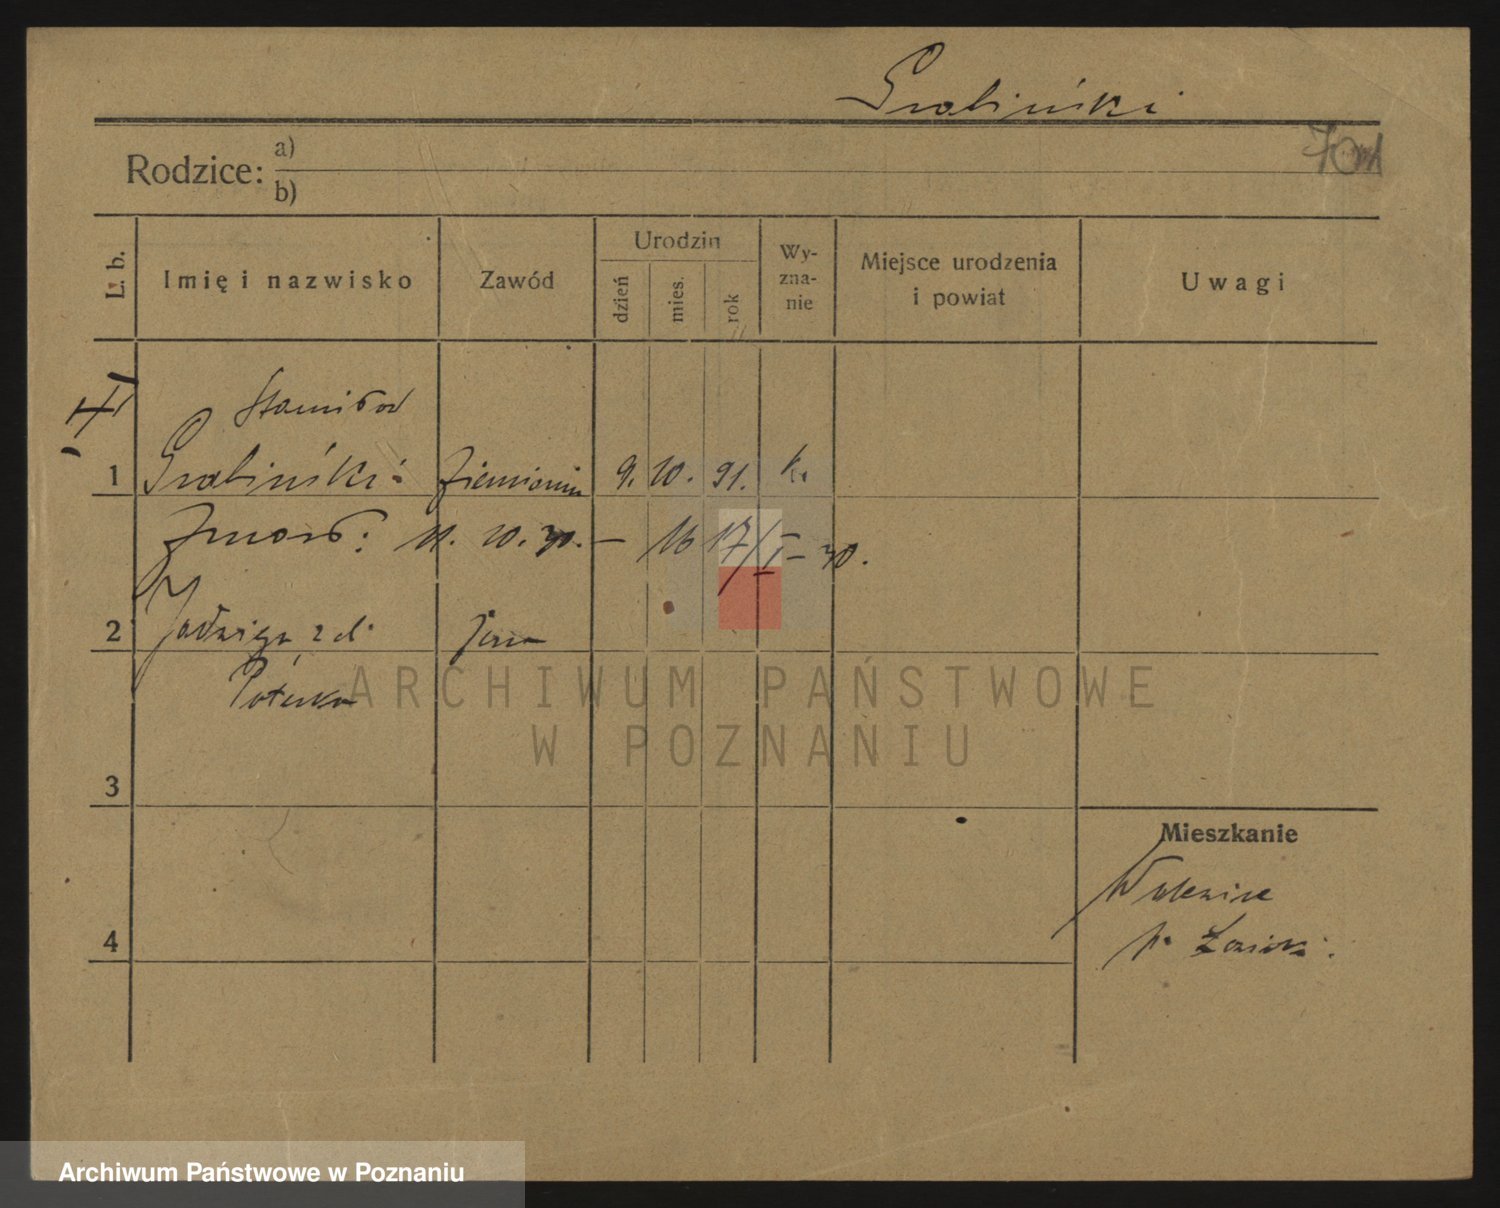 Grabiński
Rodzice: a)
b)
L. b.
Imię i nazwisko
Zawód
Urodzin
dzień
mies.
rok
Wy-
zna-
nie
Miejsce urodzenia
i powiat
Uwagi
Stanisław
1 Grabiński Ziemianin 9. 10. 91. k.
11. 10. 30. — 16 17/I – 30.
2 Jadwiga żona
3
4
Mieszkanie
ARCHIWUM PAŃSTWOWE
W POZNANIU
Archiwum Państwowe w Poznaniu